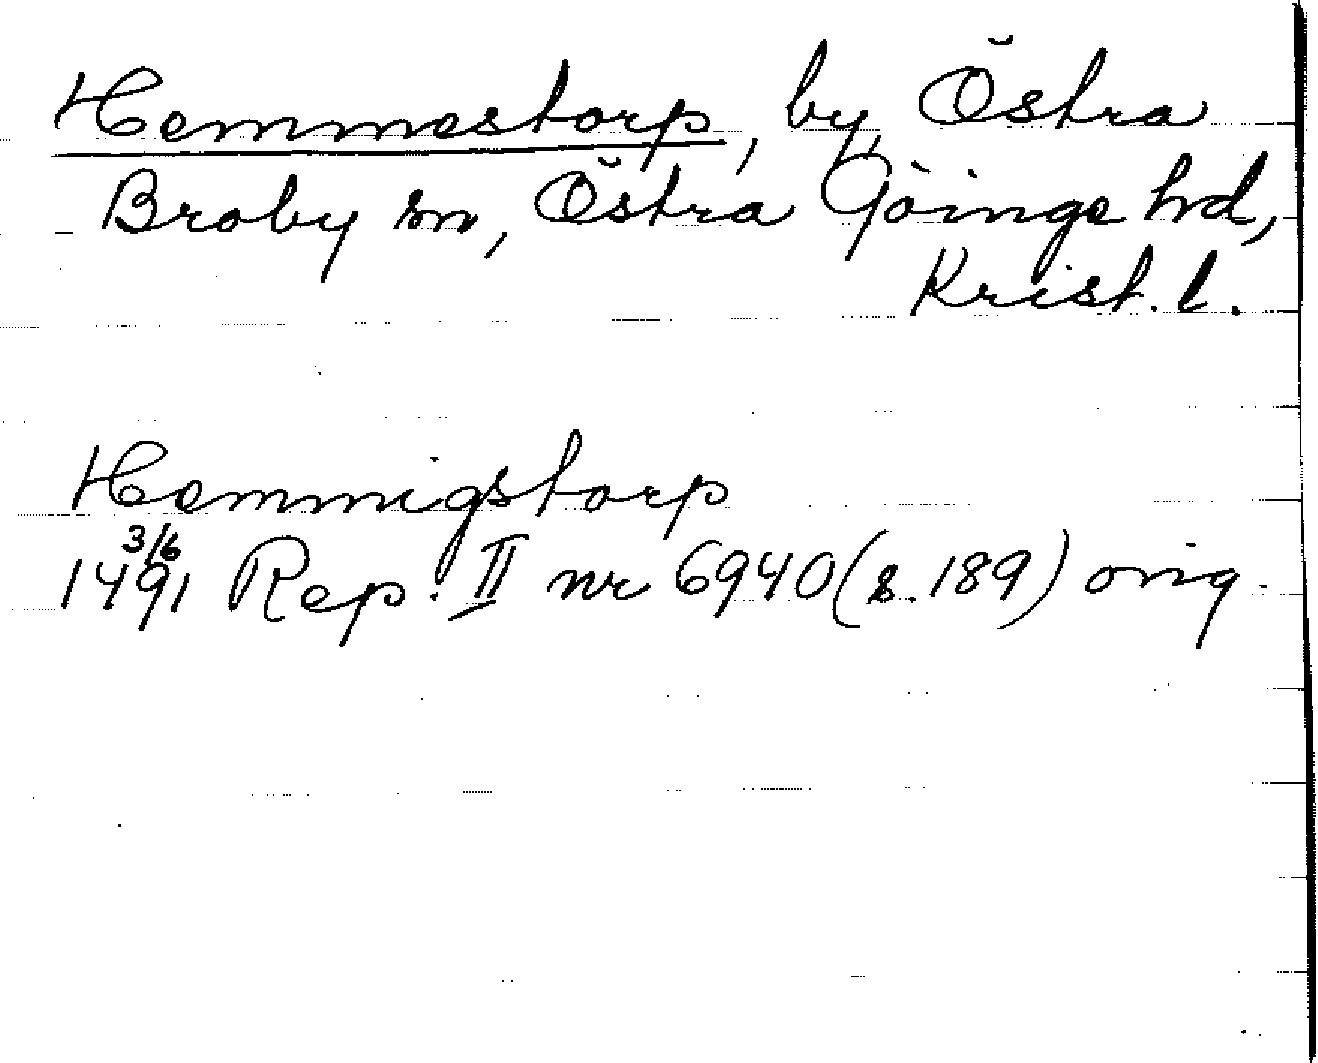 Hemmestorp, by, Östra
Broby sn, Östra Göinge hd,
Krist. l.
Hemmigstorp
3/6
1491 Rep. II nr 6940 (s. 189) orig.